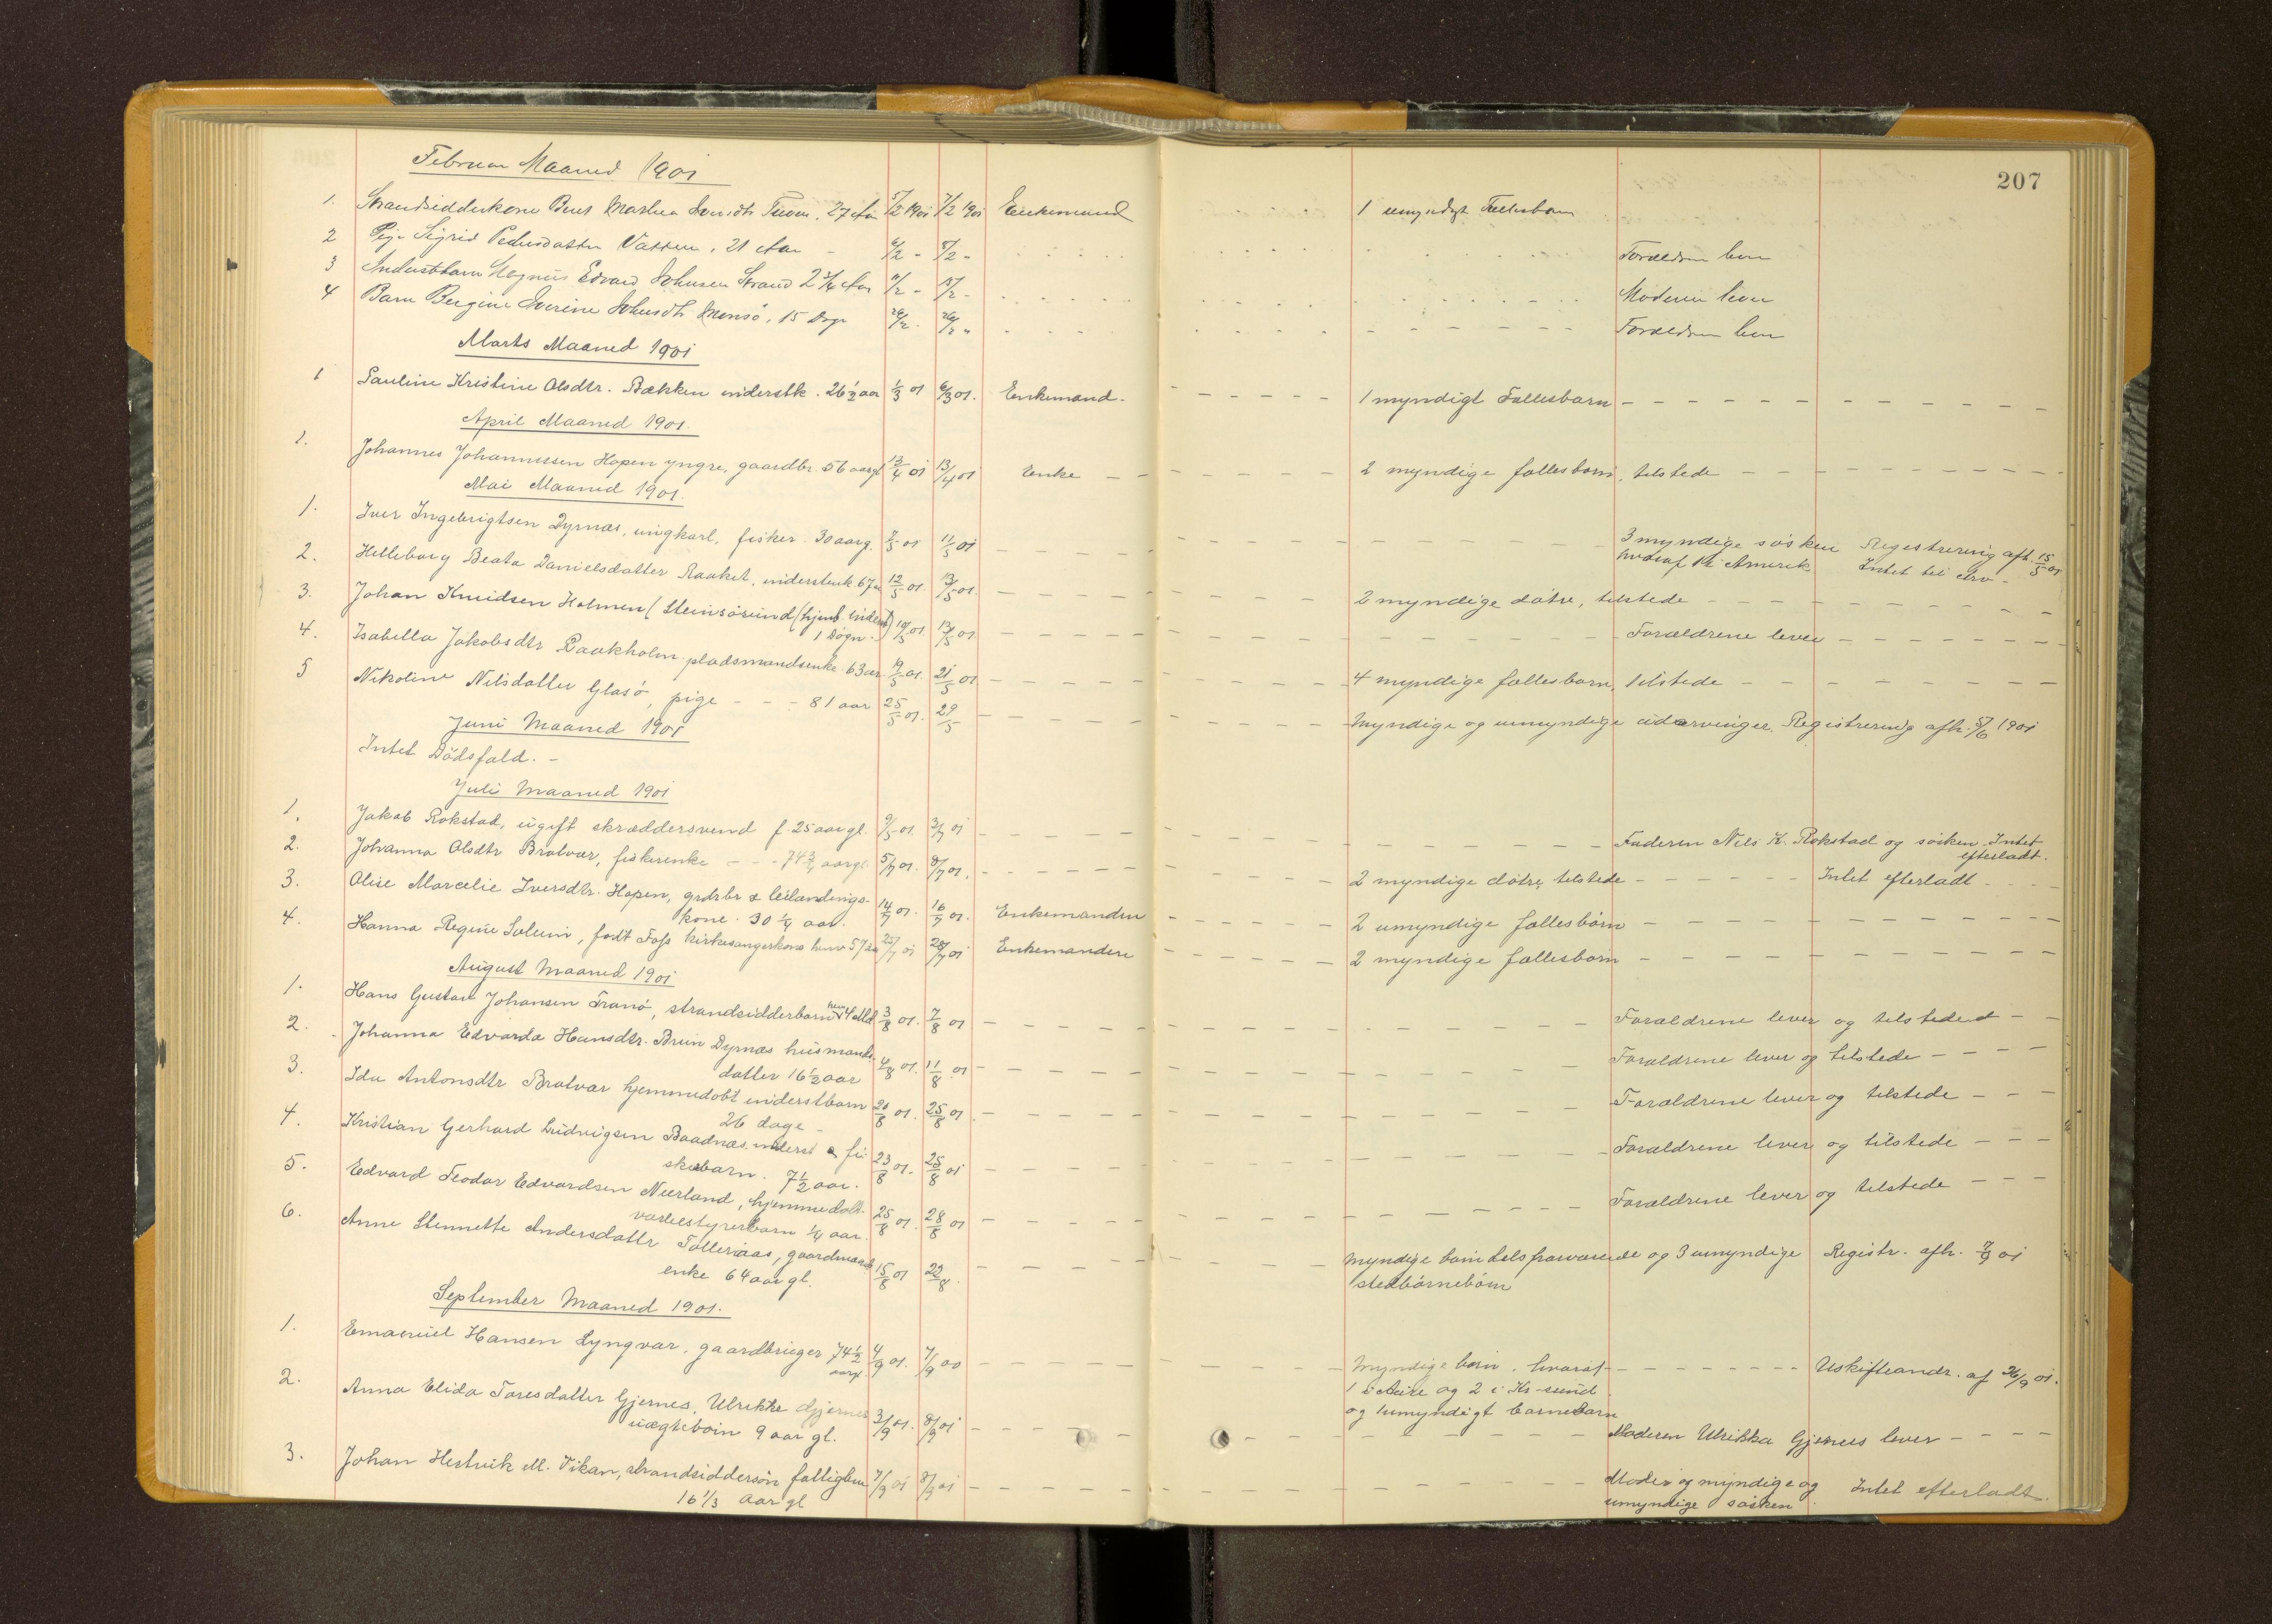 207
Februar Maaned 1901
1. Strandsidderkone Marthea 27 Aar 5/2 1901 7/2 1901 Enkemand 1 umyndigt Fællesbarn
2 Pige Sigrid Pedersdatter 21 Aar - 6/2 - 8/2 - Forældrene lever
3 Inderstbarn Magnus Edvard Johnsen Strand 2 3/4 Aar 11/2 - 15/2 - Moderen lever
4 Barn Bergine Iverine Johnsdtr 15 Dage 24/2 . 26/2 " Forældrene lever
Marts Maaned 1901
1 Pauline Kristine Olsdtr. Bækken inderstk. 26 1/2 aar 1/3 01 6/3 01. Enkemand. - - - - - 1 myndigt Fællesbarn - - - - - - - - - -
April Maaned 1901.
1. Johannes Johannessen Hopen yngre, gaardbr. 56 aargl 13/4 01 13/4 01 Enke - - 2 myndige fællesbørn, tilstede - - - - - - - - -
Mai Maaned 1901.
1. Iver Ingebrigtsen Dyrnæs, ungkarl, fisker. 30 aarg. 7/5 01 11/5 01 - - - - 3 myndige søsken Registrering afh. 15/5 01
hvoraf 1 i Amerik. Intet til Arv -
2. Helleborg Beata Danielsdatter Raaket, inderstenk. 67 a 12/5 01. 13/5 01. - - - - 2 myndige døtre, tilstede - - - - - -
3. Johan Knudsen Holmen (Steinsøsund (hjemb. inderst)
1 Døgn. 10/5 01. 13/5 01 - - - - Forældrene lever - - - - - - -
4. Isabella Jakobsdtr Raakholm pladsmandsenke 63 aar 19/5 01. 21/5 01 - - - - 4 myndige fællesbørn, tilstede - - - - - - -
5 Nikoline Nilsdatter Glasø, pige - - - 81 aar 25/5 01. 29/5 - - - - Myndige og umyndige udarvinger. Registrering afh. 5/6 1901
Juni Maaned 1901
Intet Dødsfald. -
Juli Maaned 1901
1. Jakob Rokstad, ugift skræddersvend f. 25 aar gl. 9/5 01. 3/7 01 - - - - Faderen Nils K. Rokstad og søsken. Intet
efterladt.
2. Johanna Olsdtr Bratvær, fiskerenke - - - 74 3/4 aargl. 5/7 01. 8/7 01. - - - - 2 myndige døtre, tilstede - - - - - - Intet efterladt - - -
3. Olise Marcelie Iversdtr. Hopen, grdbr & leilændings-
kone. 30 1/4 aar. 14/7 01. 16/7 01. Enkemanden - - - - - 2 umyndige fællesbørn - - - - - - - - -
4. Hanna Regine Solum, født Foss kirkesangerkone 57 aar 25/7 01 28/7 01 Enkemanden - - - - - 2 myndige fællesbørn - - - - - - - - -
August Maaned 1901
1. Hans Gustav Johansen Tranø, strandsidderbarn 4 Md 3/8 01. 7/8 01 - - - - Forældrene lever og tilstede - -
2. Johanna Edvarda Hansdtr. Brun Dyrnæs husmands-
datter 16 1/2 aar 4/8 01. 11/8 01 - - - - Forældrene lever og tilstede - - - -
3. Ida Antonsdtr Bratvær hjemmedøbt inderstbarn
26 dage - 20/8 01. 25/8 01. - - - - Forældrene lever og tilstede - - -
4. Kristian Gerhard Ludvigsen Baadnæs. inderst & fi-
skerbarn. 7 1/2 aar. 23/8 01. 25/8 01 - - - - Forældrene lever og tilstede - - -
5. Edvard Teodor Edvardsen Neerland, hjemmedøbt.
barn 1/4 aar. 25/8 01. 28/8 01 - - - - Forældrene lever og tilstede - - -
6. Anne Stennette Andersdattr Tølleraas, gaardmands-
enke 64 aar gl. 15/8 01 22/8. - - - - Myndige børn dels fraværende og 3 umyndige Registr. afh. 7/9 01
stedbørnebørn
September Maaned 1901.
1. Emanuel Hansen Lyngvær, gaardbruger 74 1/2
aargl 4/9 01. 7/9 00 - - - - Myndige børn. hvoraf - - - - - - - - Uskifteandr. af 26/9 01.
1 i Aure og 2 i Kr-sund
og 1 umyndigt barnebarn
2. Anna Elida Toresdatter Gjernes, Ulrikke Gjernes
uægtebarn 9 aar gl. 3/9 01. 8/9 01 - - - - Moderen Ulrikka Gjernes lever - - - -
3. Johan Hestvik M. Vikan, strandsiddersøn fattiglem
16 1/3 Aar gl 7/9 01 8/9 01 - - - - Moder og myndige og Intet efterladt.
umyndige søsken.